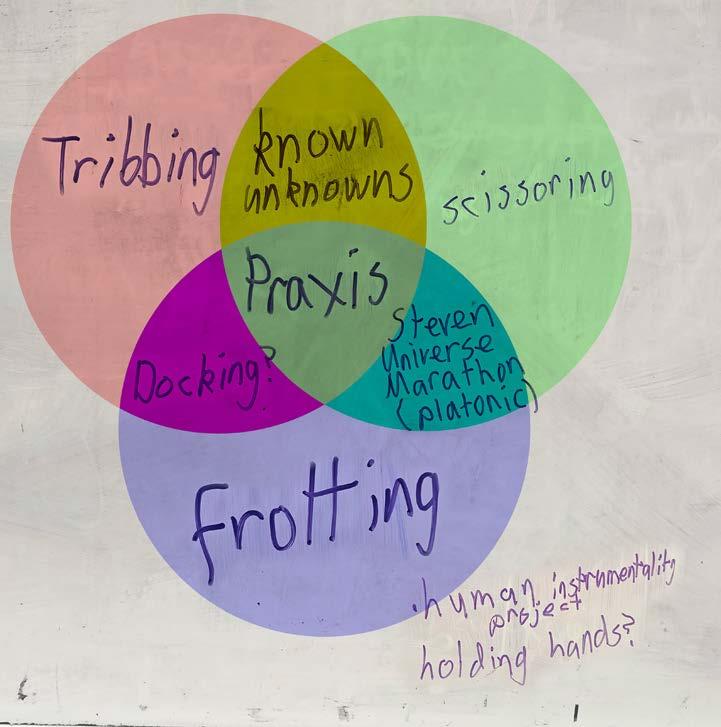 Tribbing
known
unknowns
scissoring
Praxis
Steven
Universe
Marathon
(platonic)
Docking?
frotting
.human instrumentality
project
holding hands?